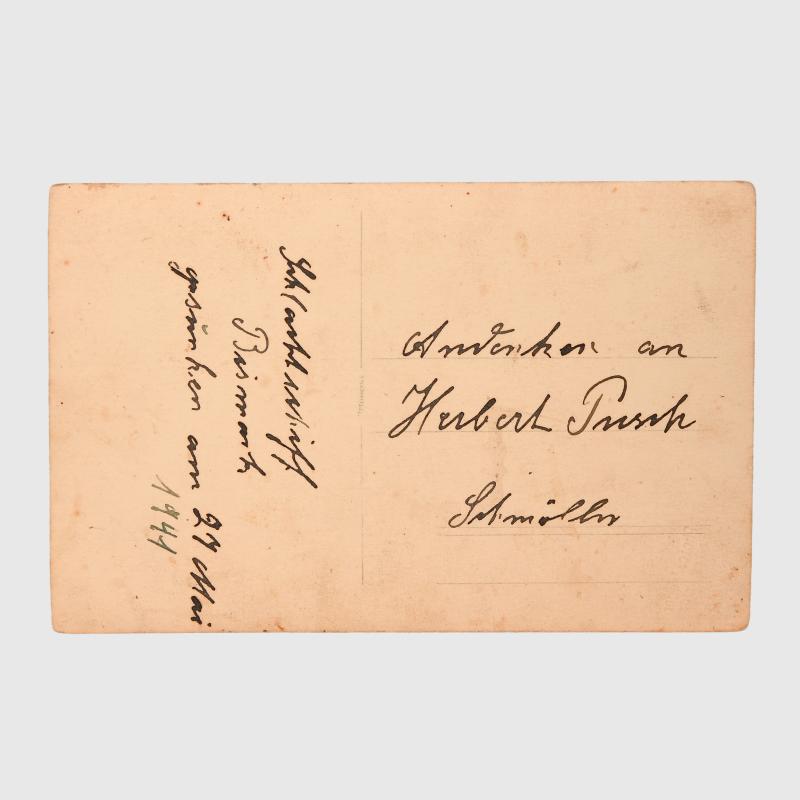 Andenken an
Herbert Pusch
Schmölln
Schlachtschiff
Bismark
gesunken am 27 Mai
1941